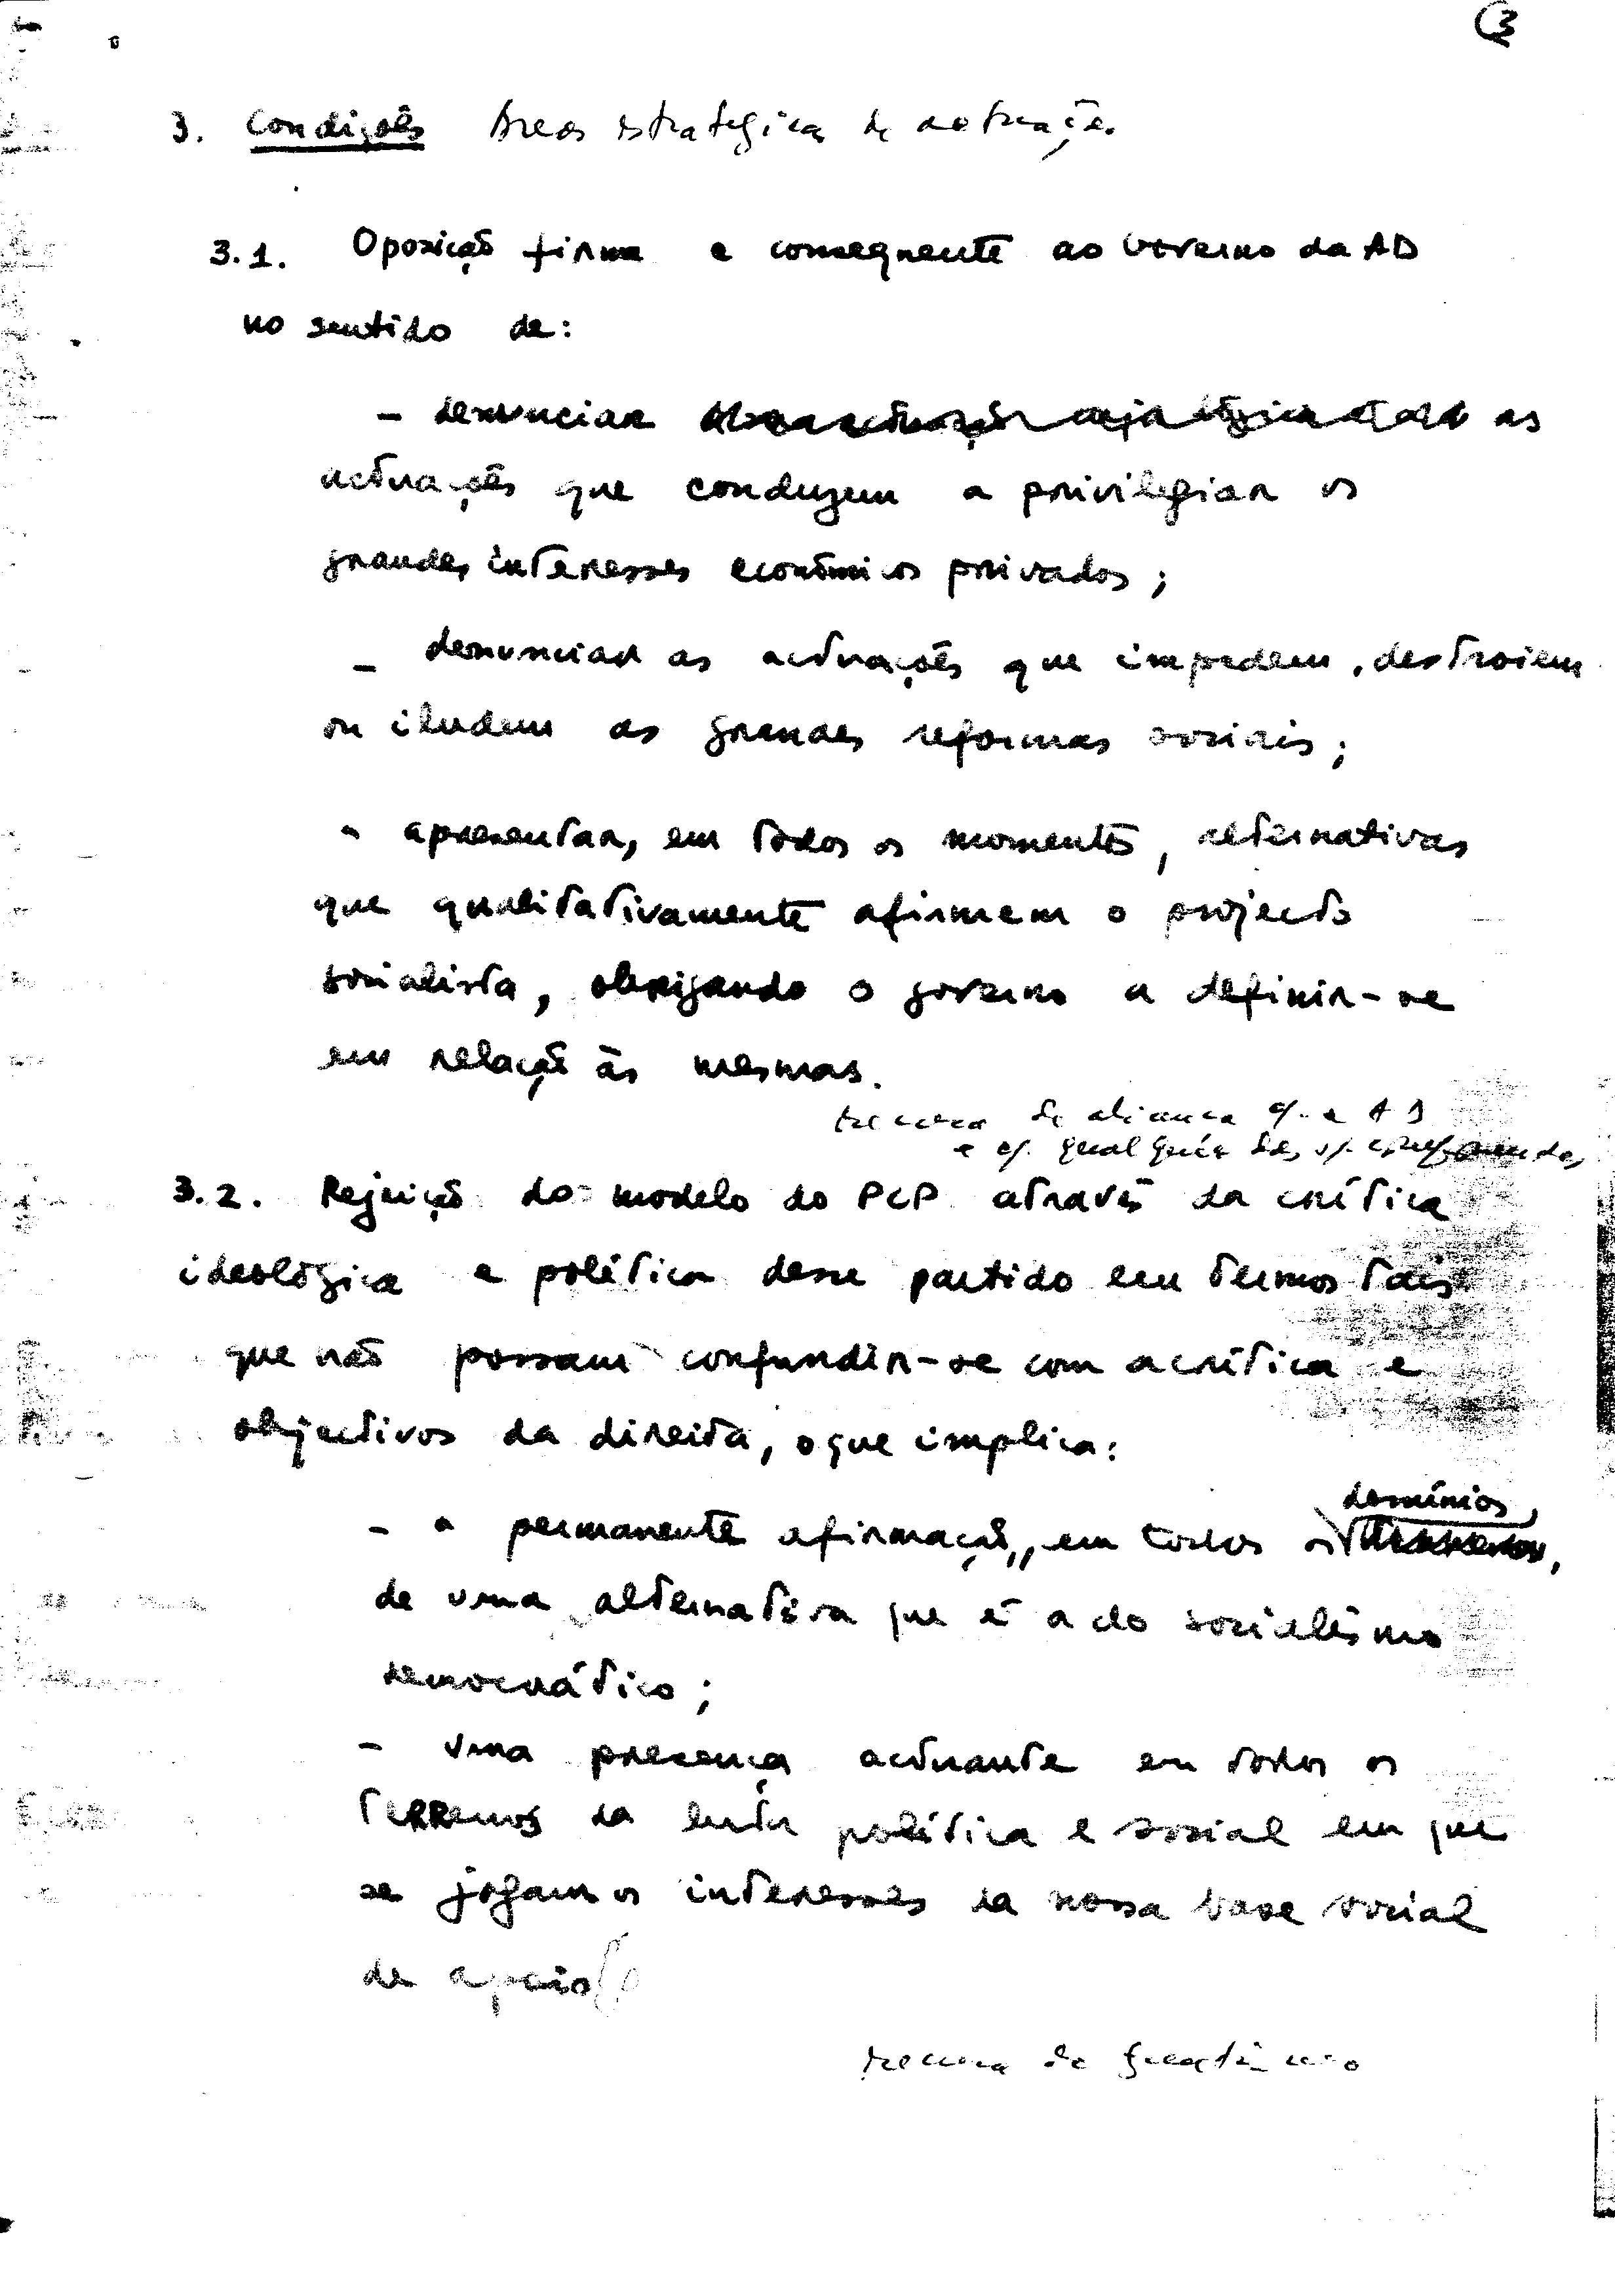 3
3. Condições Áreas estratégicas de actuação.
3.1. Oposição firme e consequente ao Governo da AD
no sentido de:
- denunciar as
actuações que conduzem a privilegiar os
grandes interesses económicos privados;
- denunciar as actuações que impedem, destroiem
ou iludem as grandes reformas sociais;
- apresentar, em todos os momentos, alternativas
que qualitativamente afirmem o projecto
socialista, obrigando o governo a definir-se
em relação às mesmas.
recusa de aliança c/. a AD
e c/. qualquer dos s/.
3.2. Rejeição do modelo do PCP através da crítica
ideológica e política desse partido em termos tais
que não possam confundir-se com a crítica e
objectivos da direita, o que implica:
domínios
- a permanente afirmação, em todos os ,
de uma alternativa que é a do socialismo
democrático;
- uma presença actuante em todos os
terrenos da luta política e social em que
se jogam os interesses da nossa base social
de apoio
recusa do frentismo